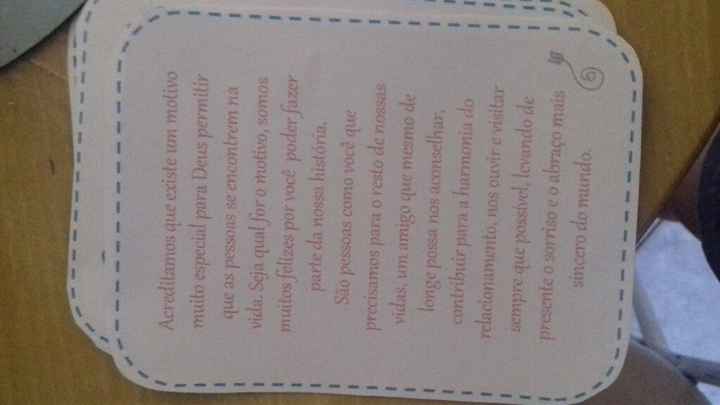 Acreditamos que existe um motivo
muito especial para Deus permitir
que as pessoas se encontrem na
vida. Seja qual for o motivo, somos
muitos felizes por você poder fazer
parte da nossa história.
São pessoas como você que
precisamos para o resto de nossas
vidas, um amigo que mesmo de
longe possa nos aconselhar,
contribuir para a harmonia do
relacionamento, nos ouvir e visitar
sempre que possível, levando de
presente o sorriso e o abraço mais
sincero do mundo.